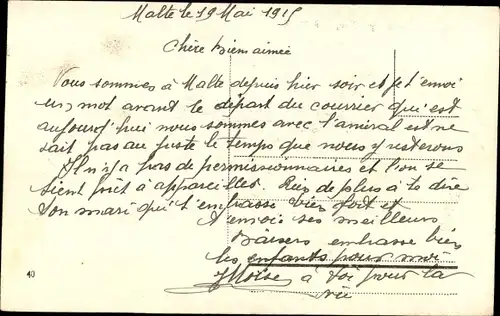 Malte le 19 Mai 1915
Chère bien aimée
Vous sommes à Malte depuis hier soir et je t'envoi
un mot avant le départ du courrier qui est
aujourd'hui nous sommes avec l'amiral est ne
sait pas au juste le temps que nous y resterons
Il n'y a pas de permissionnaires et l'on se
tient prêt à appareiller. Rien de plus à te dire
ton mari qui t'embrasse bien fort et
t'envois ses meilleurs
Baisers embrasse bien
les enfants pour moi
à toi pour la
vie
40